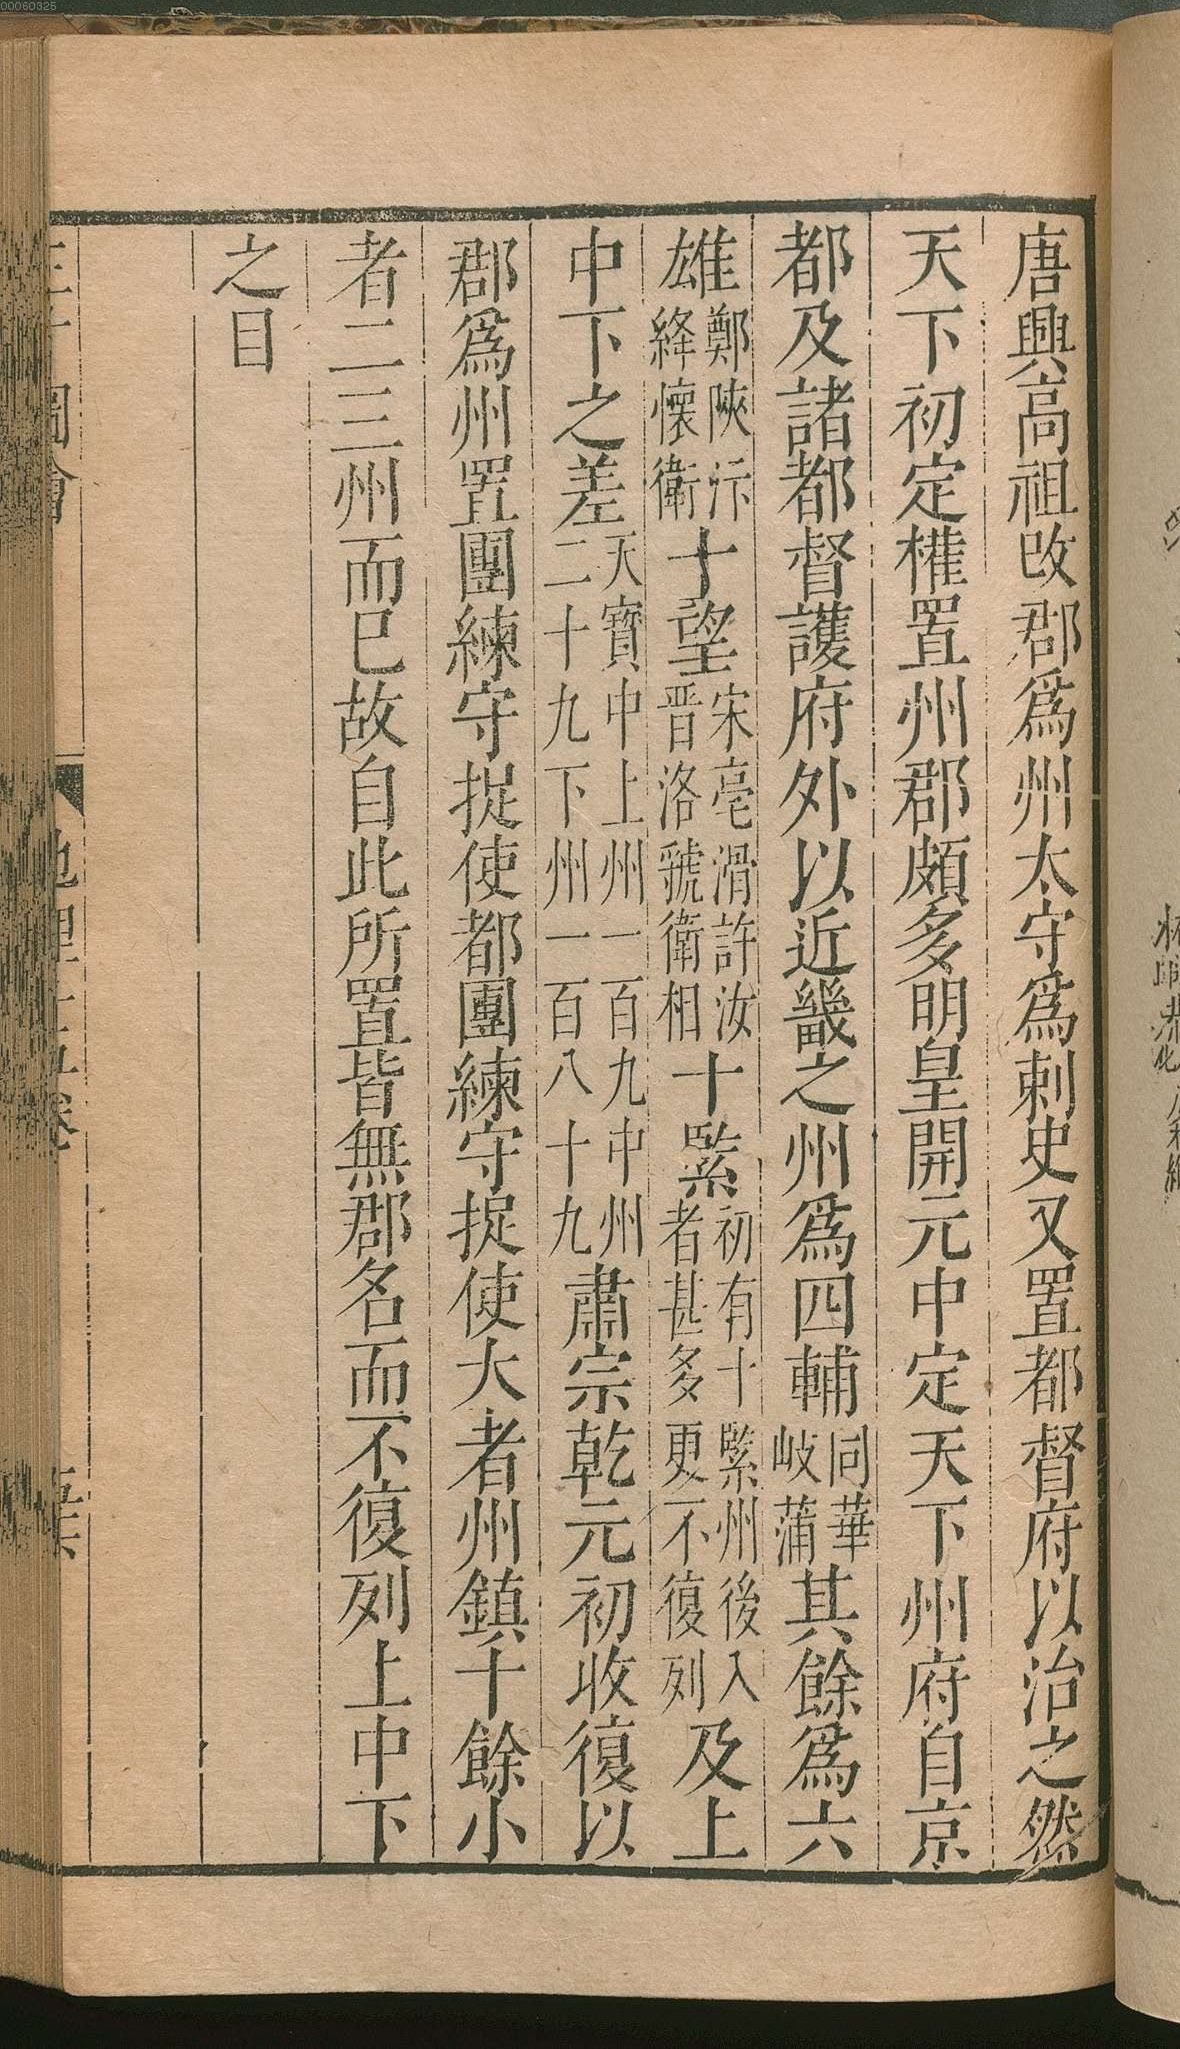 唐興高祖改郡爲州太守爲刺史又置都督府以治之然
天下初定權置州郡頗多明皇開元中定天下州府自京
都及諸都督護府外以近畿之州爲四輔同華岐蒲其餘爲六
雄鄭陝汴絳懷衛十望宋亳滑許汝晋洛虢衛相十緊初有十緊州後入者甚多更不復列及上
中下之差天寶中上州一百九中州二十九下州一百八十九肅宗乾元初收復以
郡爲州置團練守捉使都團練守捉使大者州鎮千餘小
者二三州而已故自此所置皆無郡名而不復列上中下
之目
00060325